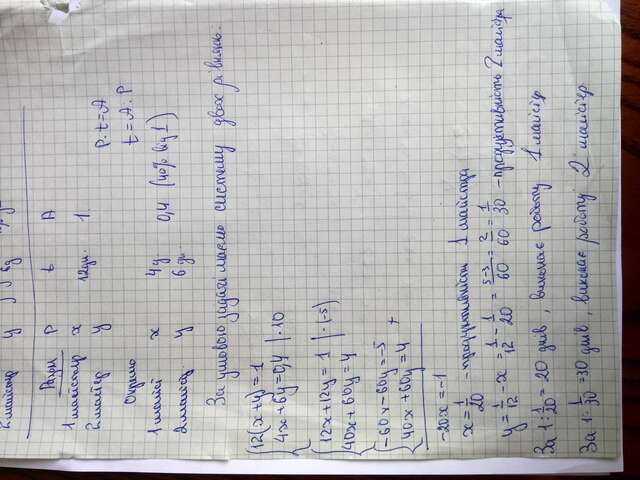 2 майстр y
Разом P t A
1 майстр x 12дн. 1 P·t=A
2 майстр y t=A:P
Окремо
1 майст x 4д 0,4 (40% від 1)
2 майст y 6 дн.
За умовою задачі маємо систему двох рівнянь:
{12(x+y)=1
4x+6y=0,4 |·10
{12x+12y=1 |·(-5)
40x+60y=4
{-60x-60y=-5
40x+60y=4 +
-20x=-1
x=1/20 -продуктивність 1 майстра
y=1/12-x=1/12-1/20=5-3/60=2/60=1/30 -продуктивність 2 майстра
За 1:1/20=20 днів, виконає роботу 1 майстр
За 1:1/30=30 днів, виконає роботу 2 майстер